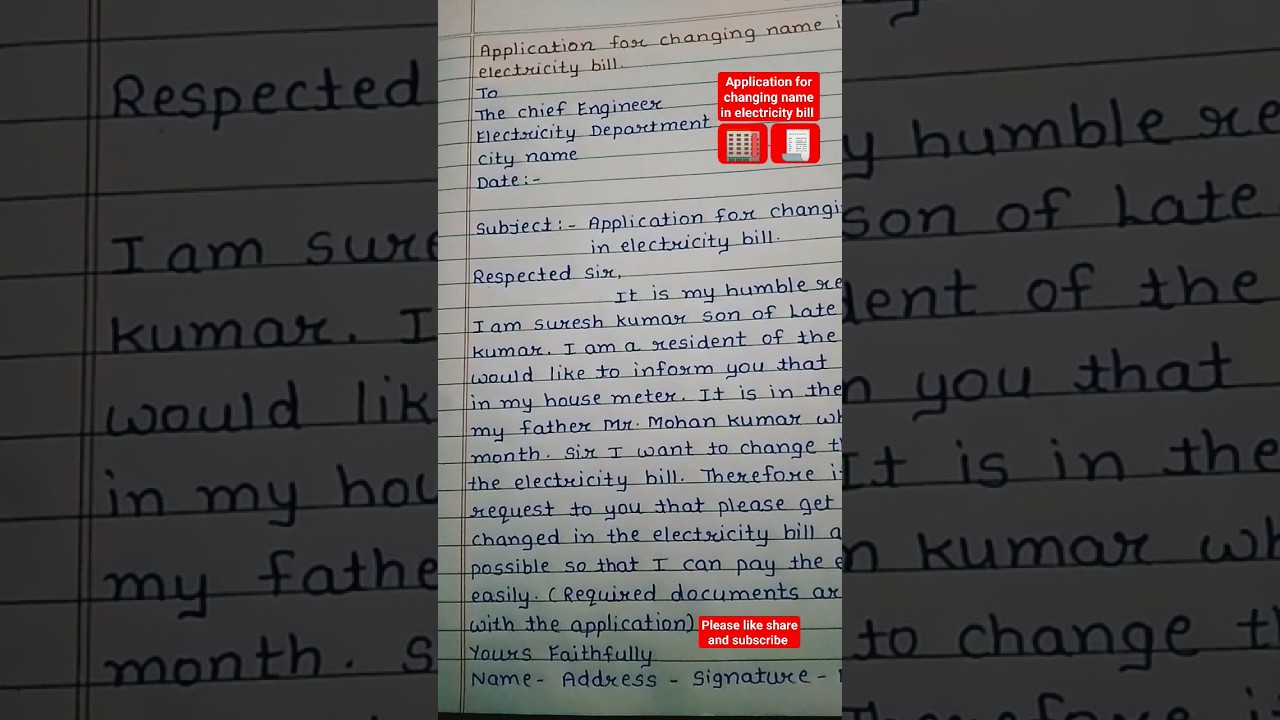 Application for changing name
electricity bill.
To
The chief Engineer
Electricity Department
city name
Date:-
Subject:- Application for
in electricity bill.
Respected Sir,
It is my humble
I am suresh kumar son of Late
kumar. I am a resident of the
would like to inform you that
in my house meter. It is in the
my father Mr. Mohan kumar
month. Sir I want to change
the electricity bill. Therefore
request to you that please get
changed in the electricity bill
possible so that I can pay the
easily. (Required documents
with the application)
Yours Faithfully
Name- Address- Signature-
Application for
changing name
in electricity bill
Please like share
and subscribe
Respected
I am
kumar. I
would
in my
my
month.
humble
son of Late
of the
you that
It is in the
kumar
to change